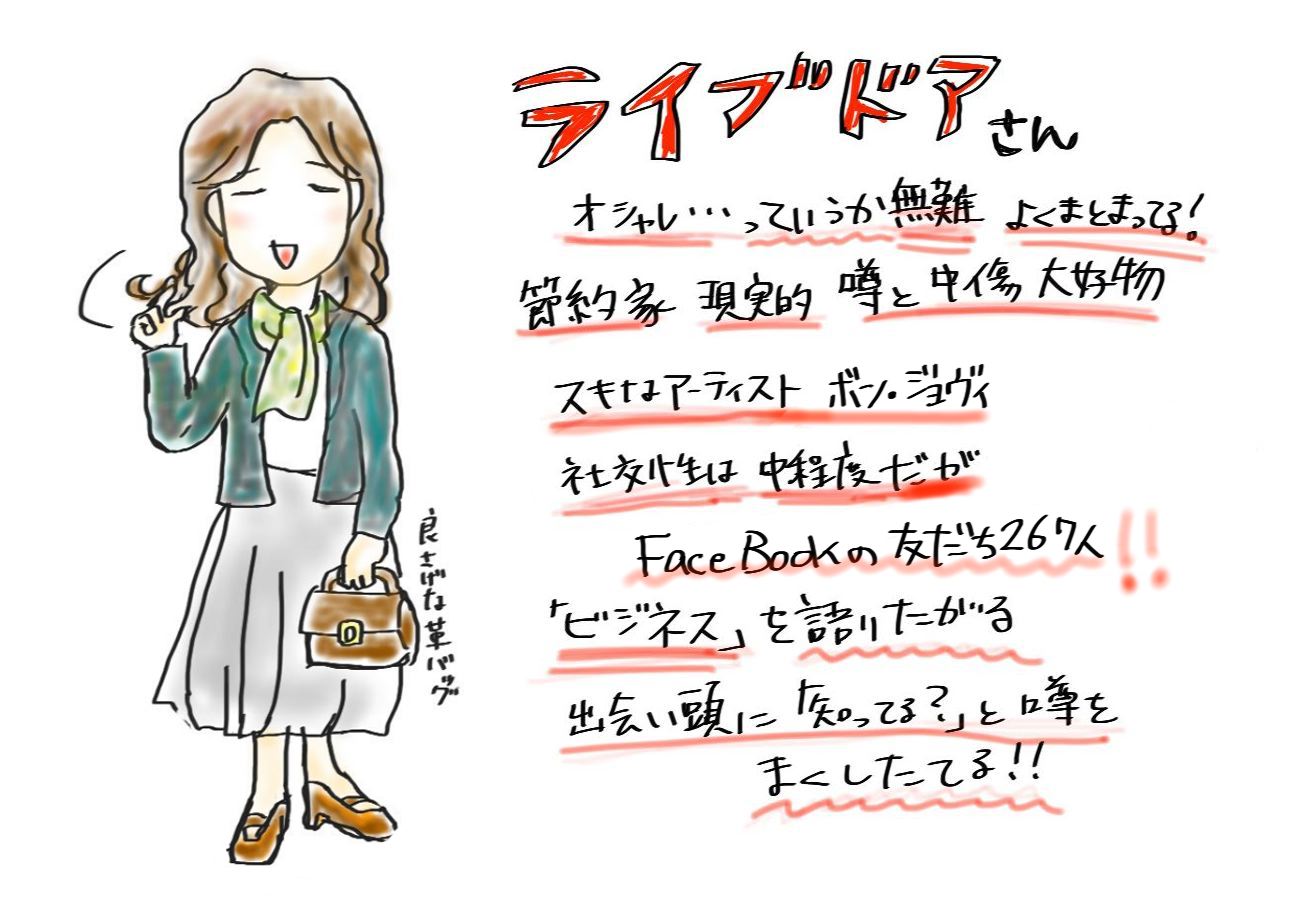 ライブドアさん
オシャレ…っていうか無難 よくまとまってる!
節約家 現実的 噂と中傷 大好物
スキなアーティスト ボン・ジョヴィ
社交性は 中程度だが
FaceBookの友だち267人!!
「ビジネス」を語りたがる
出会い頭に「知ってる?」と噂を
まくしたてる!!
良さげな革バッグ